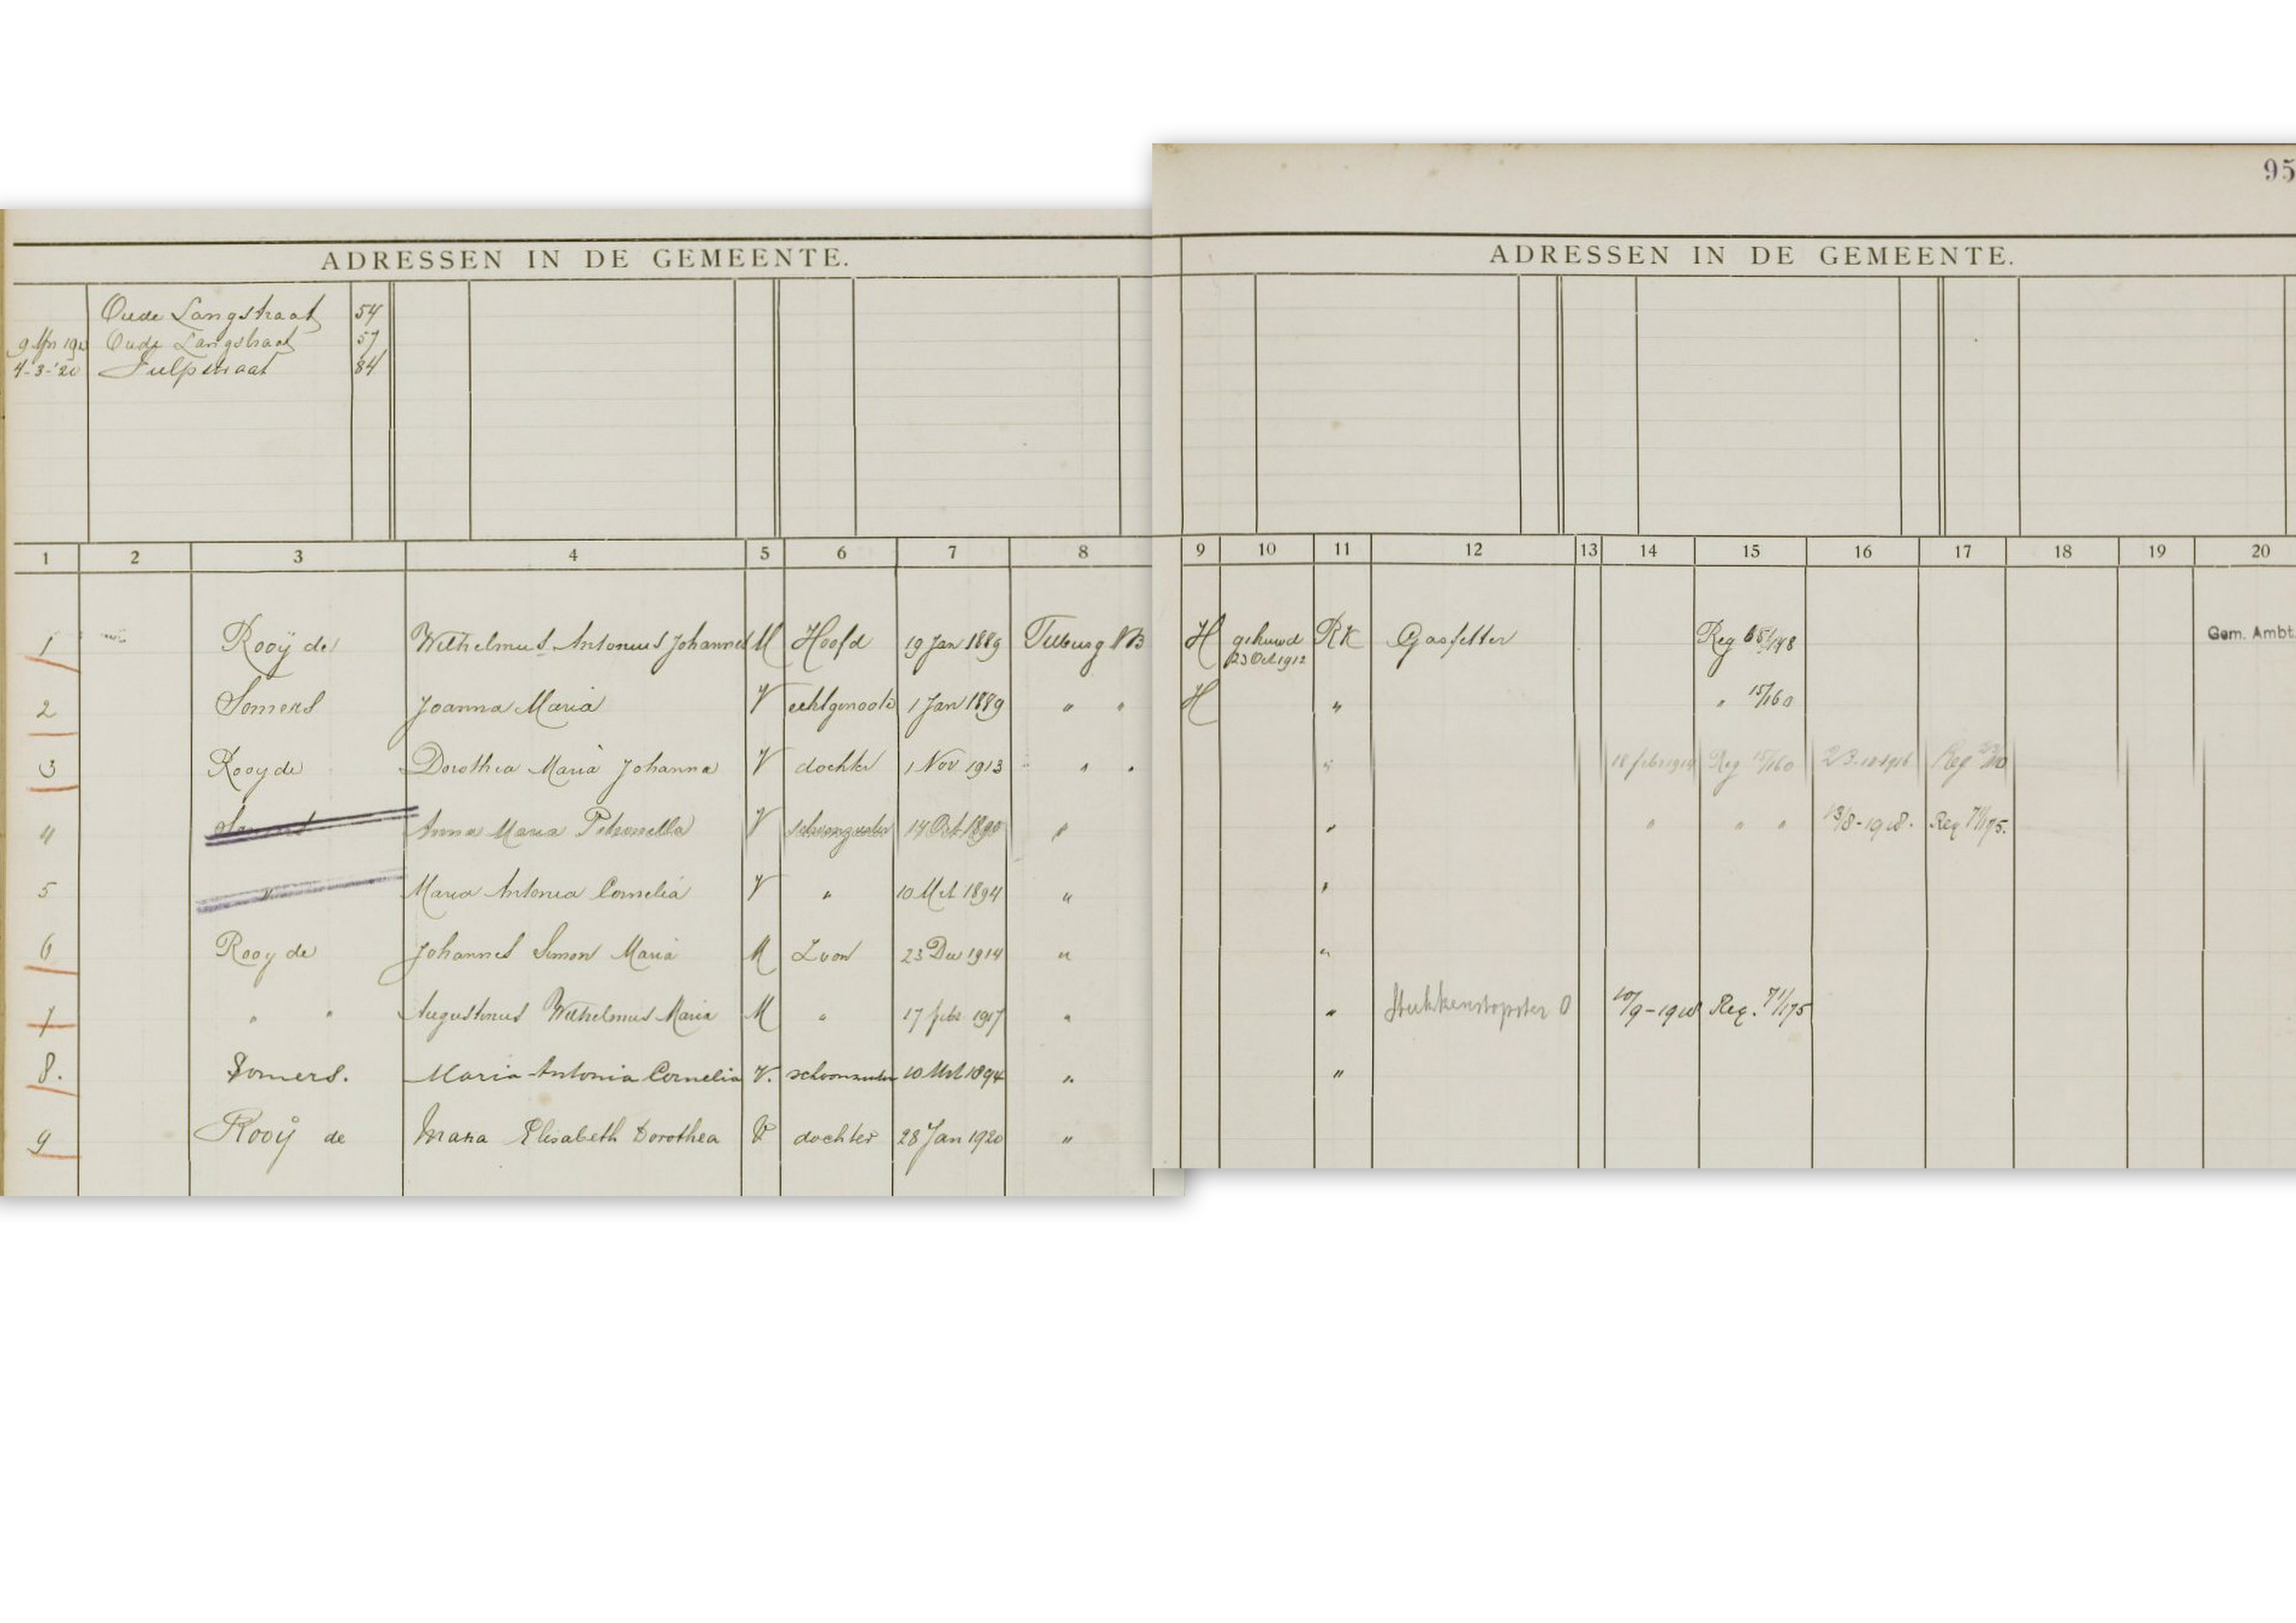 95
ADRESSEN IN DE GEMEENTE.
ADRESSEN IN DE GEMEENTE.
Oude Langstraat 54
Oude Langstraat 57
4-3-'20 Tulpstraat 84
1 2 3 4 5 6 7 8 9 10 11 12 13 14 15 16 17 18 19 20
1 Rooÿ de Wilhelmus Antonius Johannes M Hoofd 19 Jan 1889 Tilburg NB H gehuwd 23 Oct 1912 RK Gasfitter Reg 148 Gem. Ambt.
2 Somers Joanna Maria V echtgenoote 1 Jan 1889 " " H " " 15/160
3 Rooy de Dorothea Maria Johanna V dochter 1 Nov 1913 " " " 18 febr 1914 Reg 15/160 23-10-1916 Reg
4 Somers Anna Maria Petronella V schoonzuster 14 Oct 1890 " " " " " 13/8-1918. Reg 71/175.
5 " Maria Antonia Cornelia V " 10 Mrt 1894 " "
6 Rooy de Johannes Simon Maria M Zoon 23 Dec 1914 " "
7 " " Augustinus Wilhelmus Maria M " 17 febr 1917 " "
8. Somers. Maria Antonia Cornelia V. schoonzuster 10 Mrt 1894 " " Stukkenstopster O 10/9-1918 Reg. 71/175
9 Rooÿ de Maria Elisabeth Dorothea V dochter 28 Jan 1920 " "